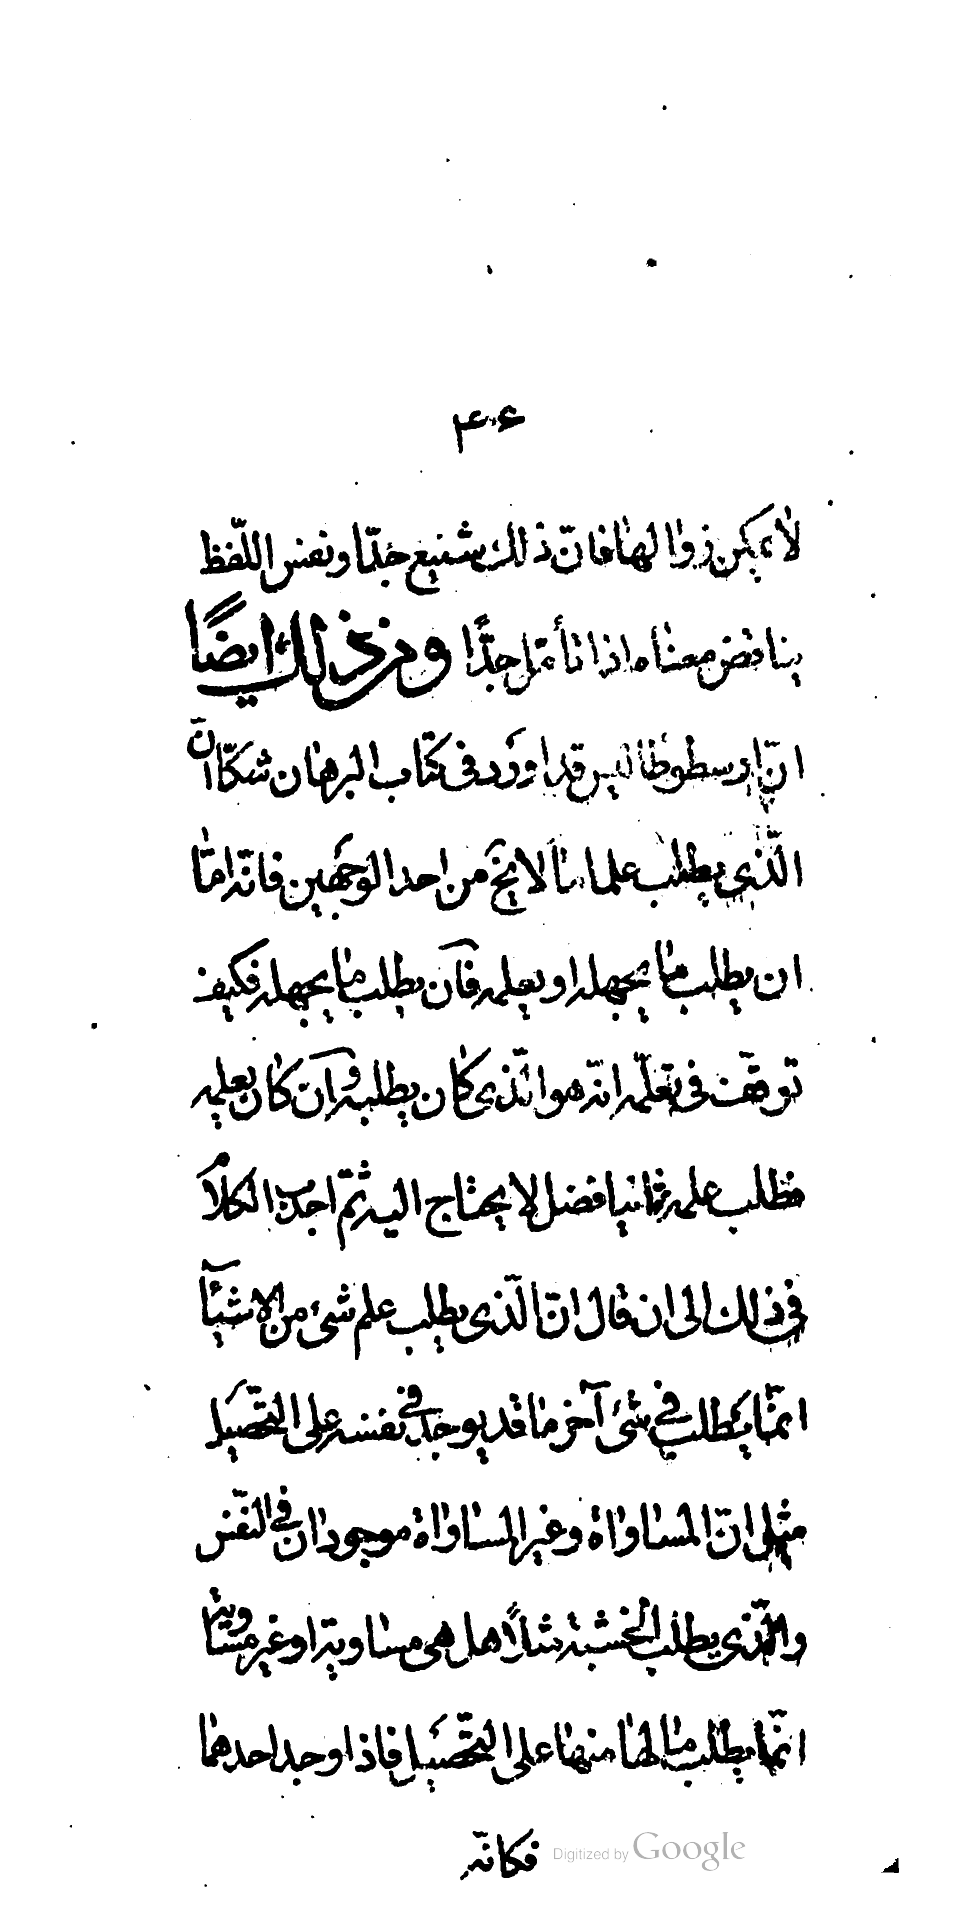 ۴۰۶
لا يمكن زوالها فانّ ذلك شنيع جدّا ونفس اللفظ
يناقض معناه اذا تأمّل جدًّا ومن ذلك ايضًا
انّ ارسطوطاليس قد اورد فى كتاب البرهان شكّا انّ
الّذى يطلب علما ما لا يخ من احد الوجهين فانّه امّا
ان يطلب ما يجهله او يعلمه فان يطلب ما يجهله فكيف
توقّف فى تعلّمه انّه هو الّذى كان يطلبه وان كان يعلمه
فطلب علمه ثانيا فضل لا يحتاج اليه ثمّ اجدب الكلام
فى ذلك الى ان قال انّ الّذى يطلب علم شئ من الاشيآ
انّما يطلب فى شئ آخر ما قد يوجد فى نفسه على التحصيل
مثل انّ المساواة وغير المساواة موجودان فى النفس
والّذى يطلب الخشبة مثلاً هل هى مساوية او غير مساوية
انّما يطلب ما لها منهما على التحصيل فاذا وجد احدهما
فكانّه
Digitized by Google